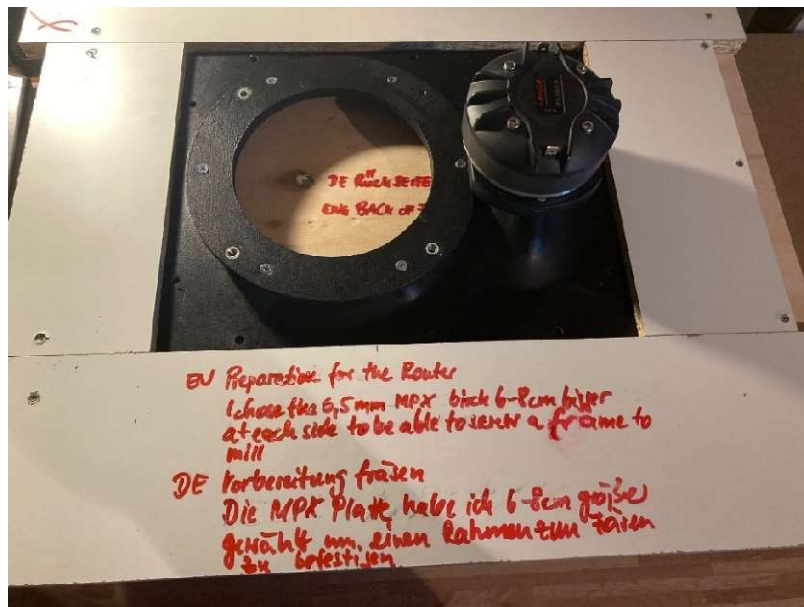 DE RÜCKSEITE
ENG BACK OF
EN Preparation for the Router
I chose the 6,5mm MPX birch 6-8cm bigger
at each side to be able to screw a frame to
mill
DE Vorbereitung fräsen
Die MPX Platte habe ich 6-8cm größer
gewählt um einen Rahmen zum fräsen
zu befestigen